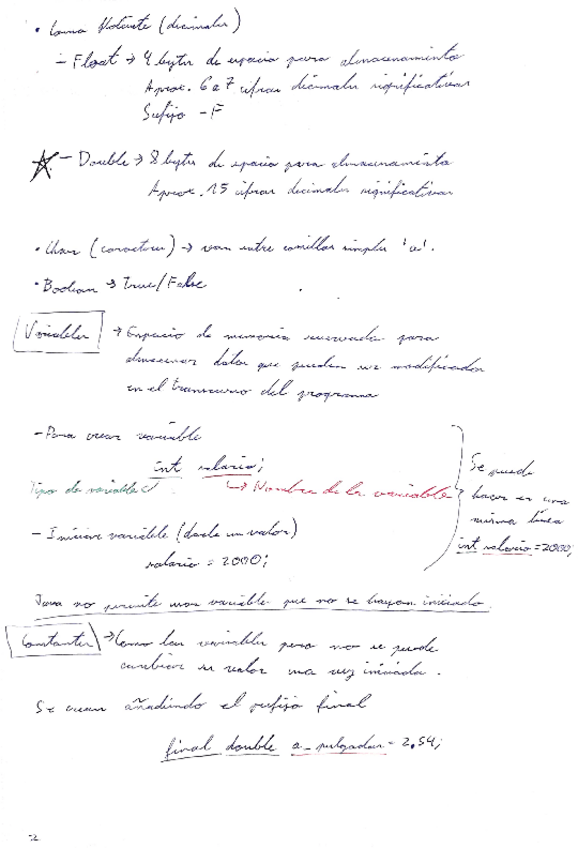 • Coma flotante (decimales)
– Float → 4 bytes de espacio para almacenamiento
Aprox. 6 a 7 cifras decimales significativas
Sufijo – F
– Double → 8 bytes de espacio para almacenamiento
Aprox. 15 cifras decimales significativas
• Char (caracteres) → van entre comillas simples 'a'.
• Boolean → True/False
Variables → Espacio de memoria reservada para
almacenar datos que pueden ser modificados
en el transcurso del programa
– Para crear variable
int salario;
Tipo de variable Nombre de la variable
– Iniciar variable (darle un valor)
salario = 2000;
Se puede
hacer en una
misma línea
int salario = 2000;
Java no permite usar variables que no se hayan iniciado.
Constantes → Como las variables pero no se puede
cambiar su valor una vez iniciada.
Se crean añadiendo el prefijo final
final double a_pulgadas = 2.54;
2